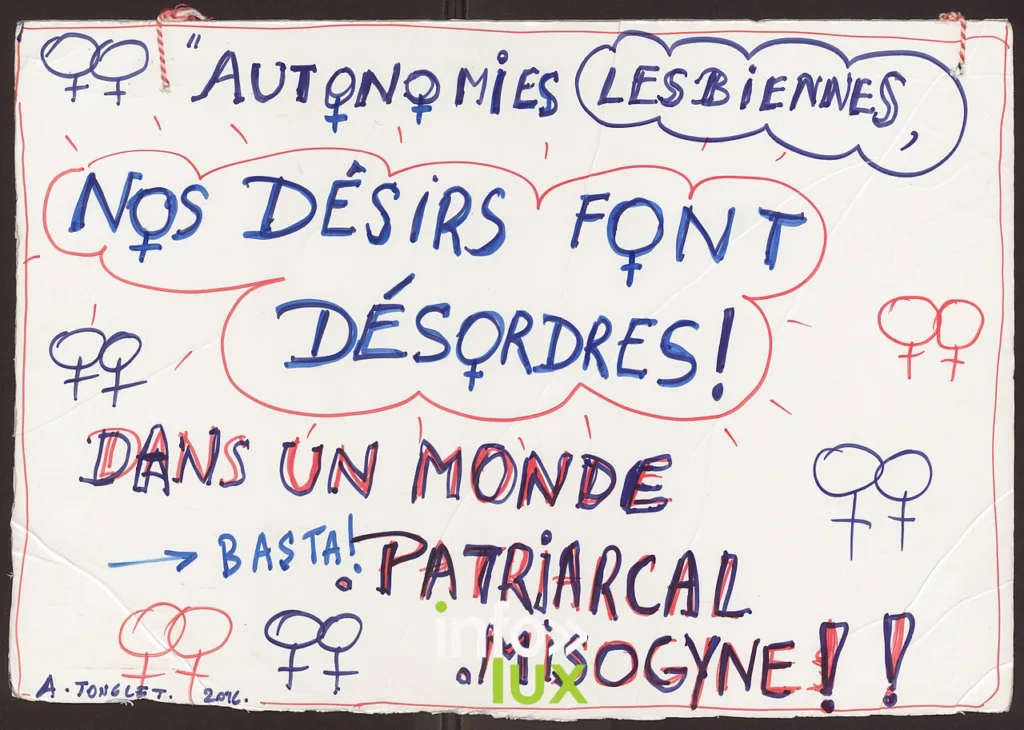 "AUTONOMIES LESBIENNES,
NOS DÉSIRS FONT
DÉSORDRES!
DANS UN MONDE
→ BASTA!
. PATRIARCAL
. MISOGYNE!!
A. TONGLET. 2016.
info»
lux